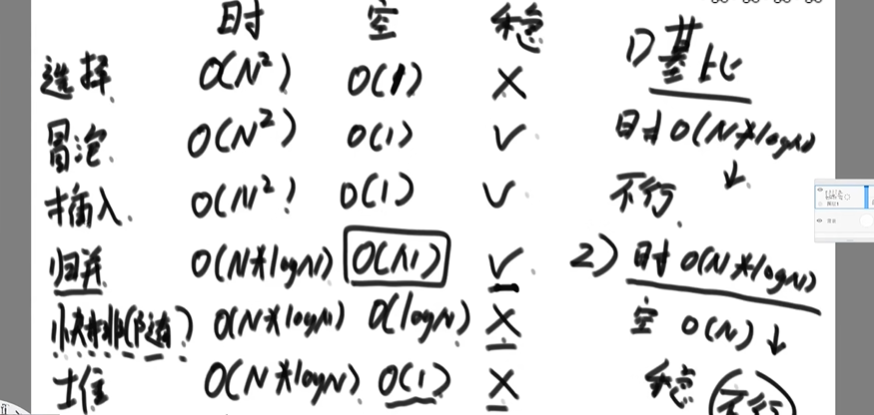 时 空 稳
选择 O(N²) O(1) X
冒泡 O(N²) O(1) √
插入 O(N²) O(1) √
归并 O(N*logN) O(N) √
快排(随) O(N*logN) O(logN) X
堆 O(N*logN) O(1) X
1) 基比
时 O(N*logN) ↓
不行
2) 时 O(N*logN)
空 O(N) ↓
稳 不行